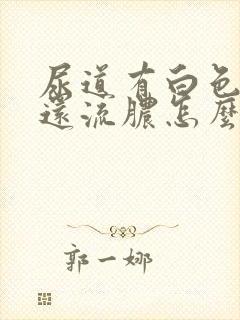 尿道有白色
還流膿怎麼
郭一娜